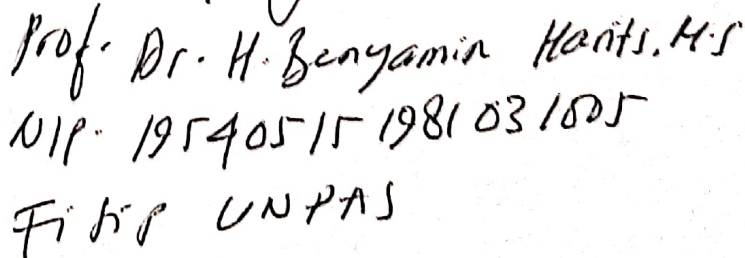 Prof. Dr. H. Benyamin Harits. M.S
NIP. 19540515 198103 1005
Fisip UNPAS